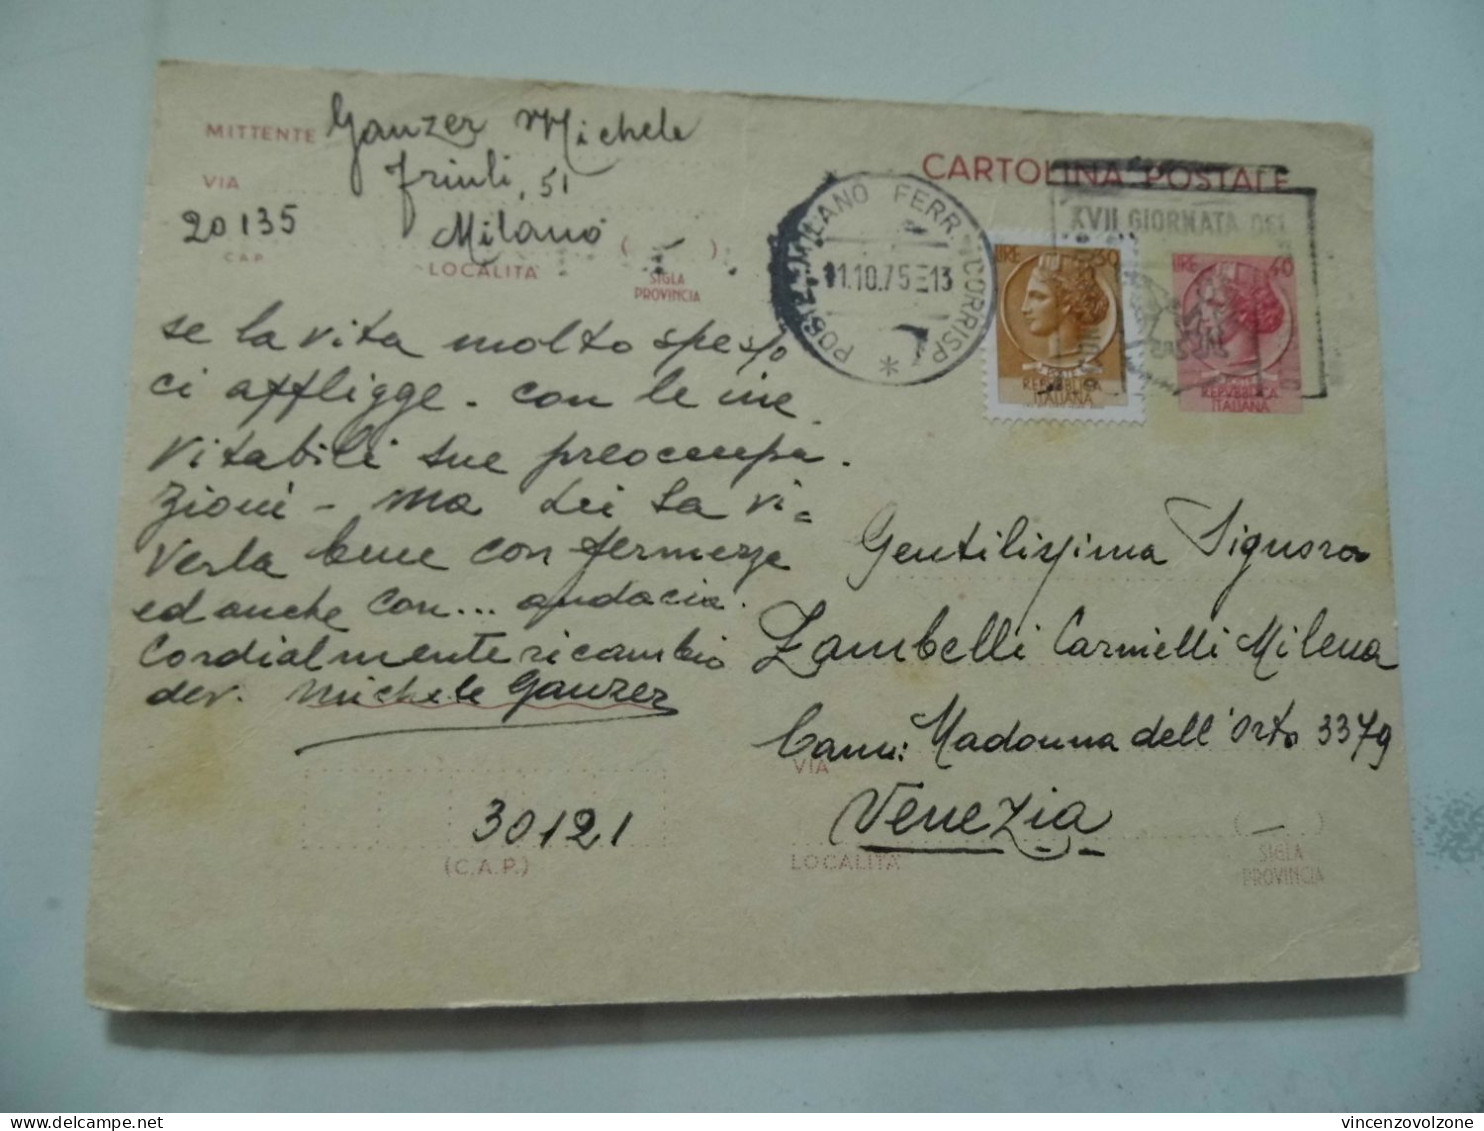 CARTOLINA POSTALE
MITTENTE Ganzer Michele
VIA Friuli, 51
20135 Milano ( )
C.A.P. LOCALITÀ SIGLA PROVINCIA
MILANO FERR. CORRISP.
11.10.75 13
XVII GIORNATA DEL
LIRE 50
REPUBBLICA
ITALIANA
LIRE 40
REPVBBLICA
ITALIANA
se la vita molto spesso
ci affligge - con le ine
vitabili sue preoccupa
zioni - ma Lei sa vi=
verla bene con fermezza
ed anche con... audacia.
Cordialmente ricambio
dev. Michele Ganzer
Gentilissima Signora
Zambelli Carnielli Milena
Cann: Madonna dell'Orto 3379
VIA
Venezia ( )
LOCALITÀ SIGLA PROVINCIA
30121
(C.A.P.)
vincenzovolzone